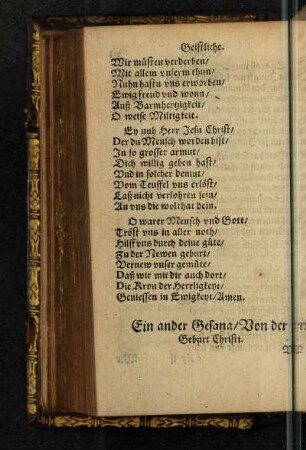 Geistliche.
Wir müsten verderben/
Mit allem vnserm thun/
Nuhn hastu vns erworben/
Ewig freud vnd wonn/
Auß Barmhertzigkeit/
O weise Miltigkeit.
Ey nuh Herr Jesu Christ/
Der du Mensch worden bist/
In so grosser armut/
Dich willig geben hast/
Vnd in solcher demut/
Vom Teuffel vns erlöst/
Laß nicht verlohren sein/
An vns die wolthat dein.
O warer Mensch vnd Gott/
Tröst vns in aller noth/
Hilff vns durch deine güte/
Zu der Newen geburt/
Vernew vnser gemüte/
Daß wir mit dir auch dort/
Die Kron der Herrligkeyt/
Geniessen in Ewigkeyt/Amen.
Ein ander Gesang/Von der
Geburt Christi.